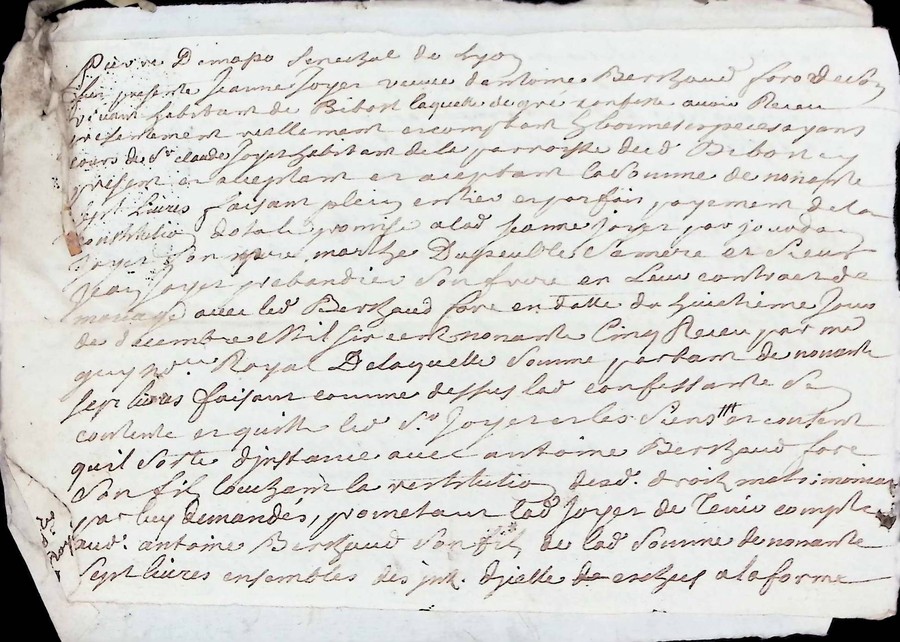 Pierre Senechal de Lyon
fut presente Jeanne Joyer veuve dantoine Berthaud fore de son
vivant habitant de Bibost laquelle de gré confesse avoir Receu
presentement reellement et comptant et bonnes especes ayant
cours de Sr claude Joyer habitant de la parroisse dud Bibost
present et acceptant et aceptant la Somme de nonante
Sept Livres faisant plein entier et parfait payement de la
constitution dotale promise a lad Jeanne Joyer par
Joyer Son pere marthe Dupeuble Sa mere et Sieur
Jean Joyer prebandier Son frere en Leur contract de
mariage avec led Berthaud fore en datte du huictieme Jour
de decembre Mil six cent nonante Cinq Receu par me
guy nore Royal De laquelle Somme partant de nonante
sept livres faisant comme dessus lad confessante Se
contente et quitte led Sr Joyer et les Siens et consent
quil Sorte djnstance avec antoine Berthaud fore
Son filz touchant la restitution desd. droitz matrimoniaux
par luy demandés, prometant lad Joyer de Tenir compte
aud. antoine Berthaud Son filz de lad Somme de nonante
Sept livres ensembles des jnt. djcelle a la forme